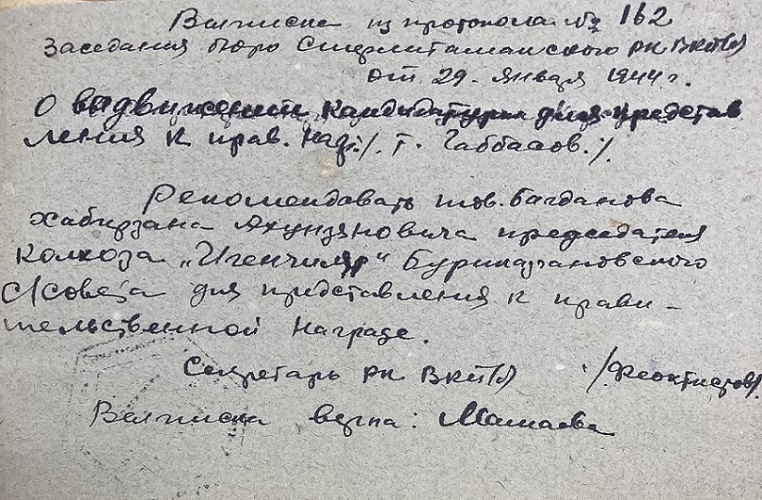 Выписка из протокола № 162
Заседания бюро Стерлитамакского РК ВКП(б)
от 29. января 1944 г.
О выдвижении кандидатуры для представ
ления к прав. наг./. т. Габбасов./.
Рекомендовать тов. Багданова
Хабирзана Ахунзяновича председателя
Колхоза „Игенчиляр" Буриказгановского
С/совета для представления к прави-
тельственной награде.
Секретарь РК ВКП(б) ./Феоктистов/.
Выписка верна: